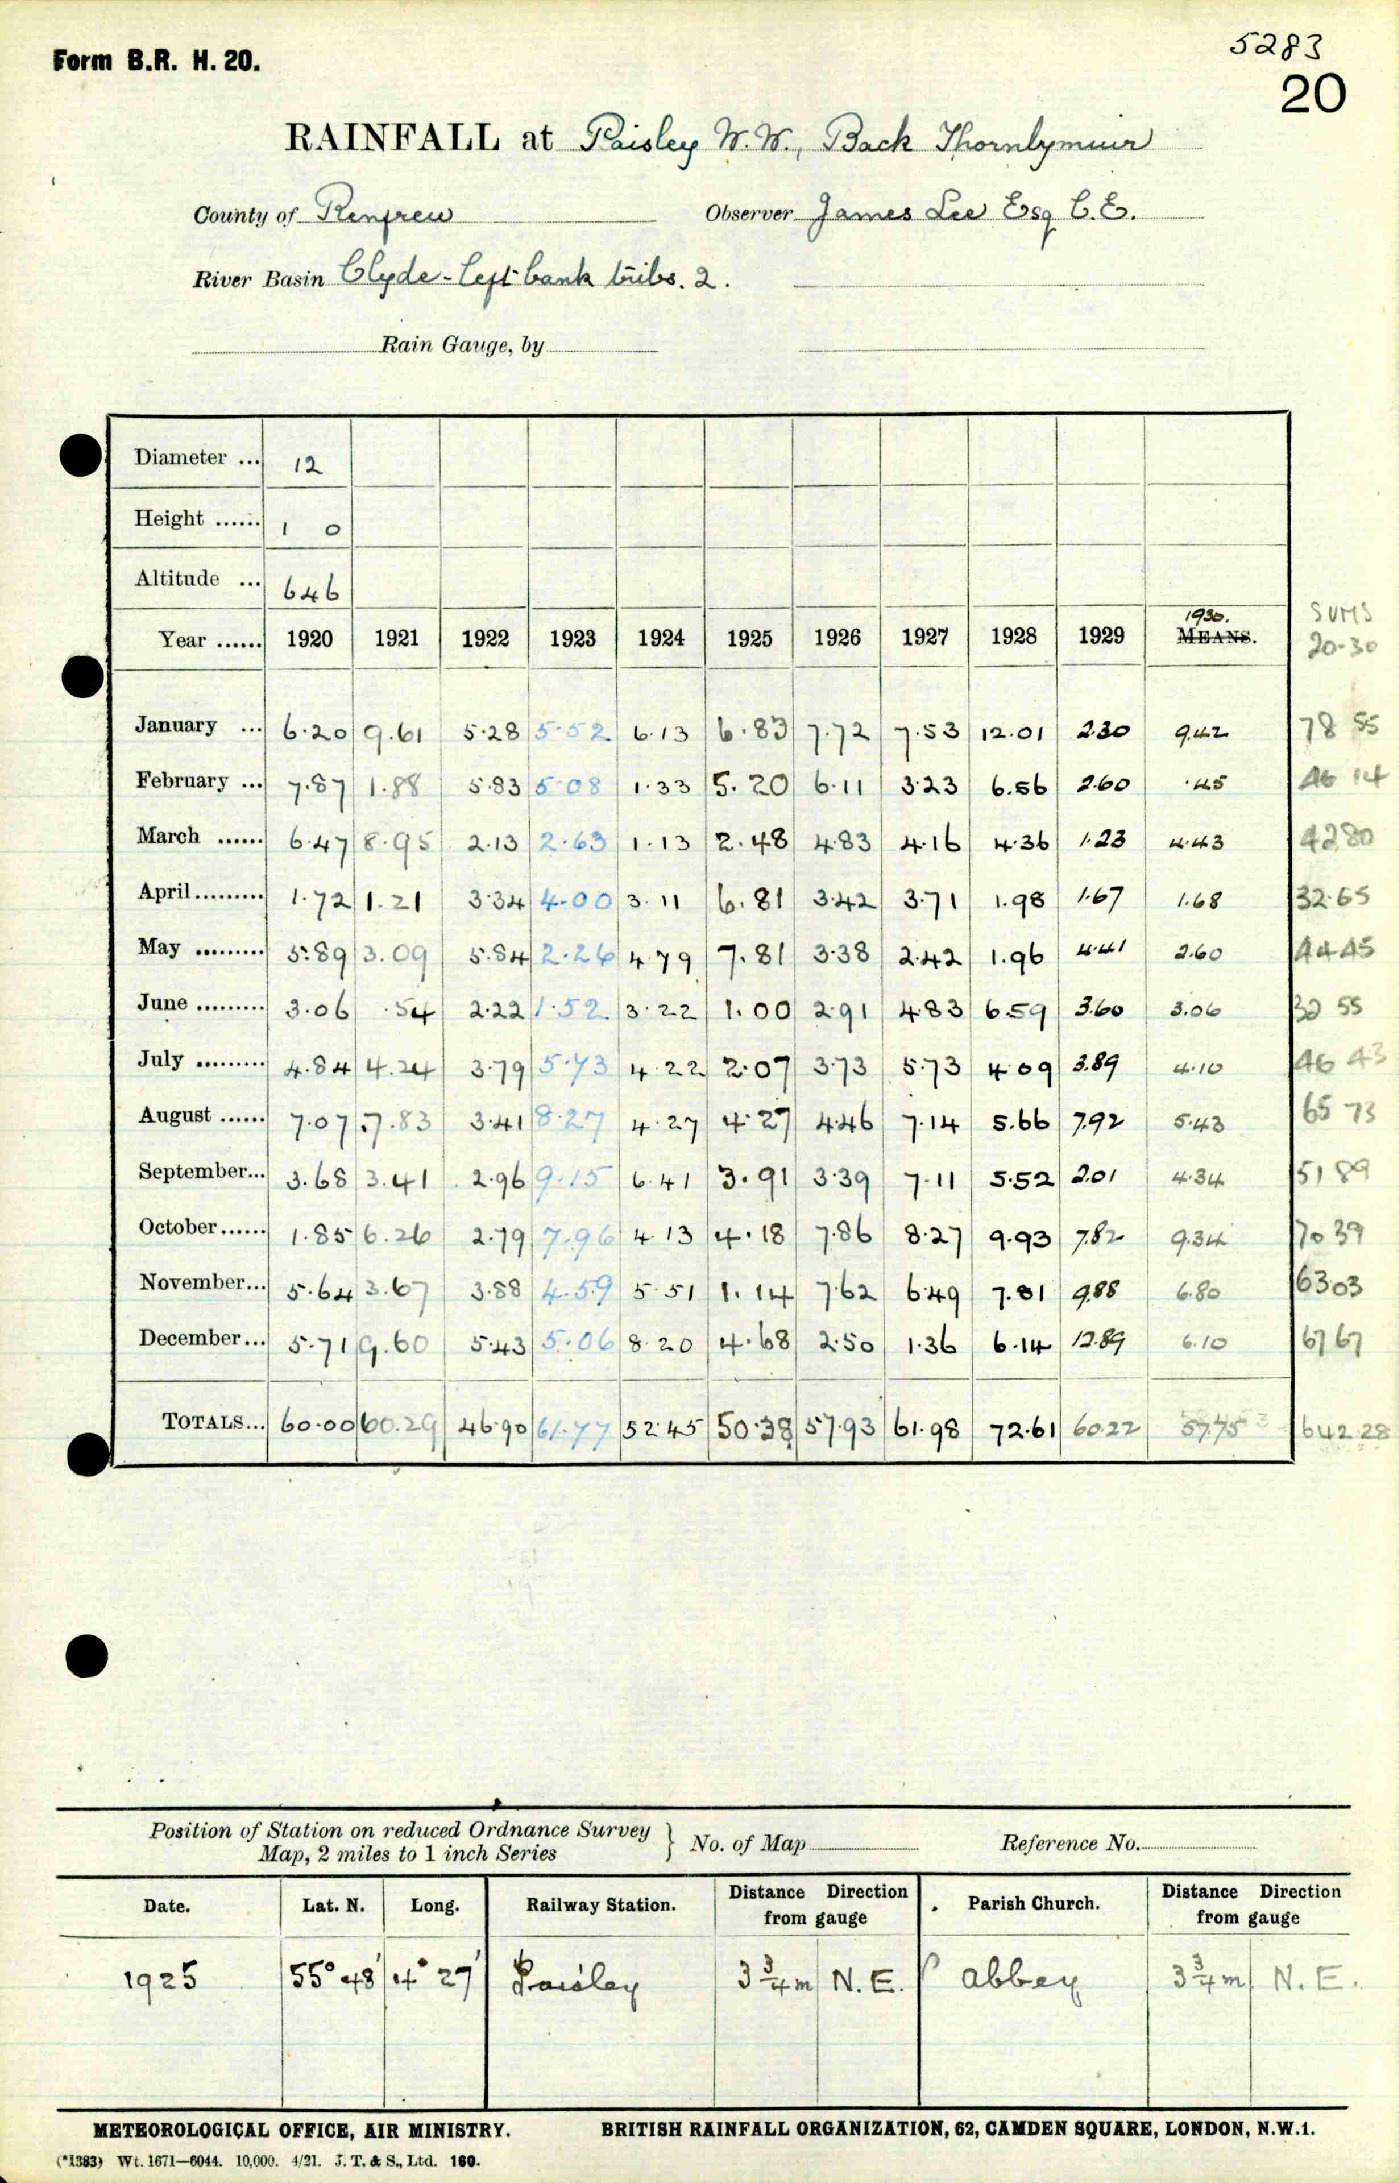 5283
Form B.R. H. 20.
20
RAINFALL at Paisley W.W., Back Thornlymuir
County of Renfrew Observer James Lee Esq C.E.
River Basin Clyde - left bank tribs. 2.
Rain Gauge, by
Diameter ... 12
Height ...... 1 0
Altitude ... 646
1930. SUMS
Year ...... 1920 1921 1922 1923 1924 1925 1926 1927 1928 1929 MEANS. 20-30
January ... 6.20 9.61 5.28 5.52 6.13 6.83 7.72 7.53 12.01 2.30 9.42 78 55
February ... 7.87 1.88 5.83 5.08 1.33 5.20 6.11 3.23 6.56 2.60 .45 46 14
March ...... 6.47 8.95 2.13 2.63 1.13 2.48 4.83 4.16 4.36 1.23 4.43 42 80
April ......... 1.72 1.21 3.34 4.00 3.11 6.81 3.42 3.71 1.98 1.67 1.68 32.65
May ......... 5.89 3.09 5.84 2.26 4.79 7.81 3.38 2.42 1.96 4.41 2.60 44 45
June ......... 3.06 .54 2.22 1.52 3.22 1.00 2.91 4.83 6.59 3.60 3.06 32 55
July ......... 4.84 4.24 3.79 5.73 4.22 2.07 3.73 5.73 4.09 3.89 4.10 46 43
August ...... 7.07 7.83 3.41 8.27 4.27 4.27 4.46 7.14 5.66 7.92 5.43 65 73
September... 3.68 3.41 2.96 9.15 6.41 3.91 3.39 7.11 5.52 2.01 4.34 51 89
October...... 1.85 6.26 2.79 7.96 4.13 4.18 7.86 8.27 9.93 7.82 9.34 70 39
November... 5.64 3.67 3.88 4.59 5.51 1.14 7.62 6.49 7.81 9.88 6.80 63 03
December... 5.71 9.60 5.43 5.06 8.20 4.68 2.50 1.36 6.14 12.89 6.10 67 67
TOTALS... 60.00 60.29 46.90 61.77 52.45 50.38 57.93 61.98 72.61 60.22 57.75 642 28
Position of Station on reduced Ordnance Survey
Map, 2 miles to 1 inch Series } No. of Map Reference No.
Date. Lat. N. Long. Railway Station. Distance Direction from gauge Parish Church. Distance Direction from gauge
1925 55° 48' 4° 27' Paisley 3 3/4 m N.E. Abbey 3 3/4 m N.E.
METEOROLOGICAL OFFICE, AIR MINISTRY. BRITISH RAINFALL ORGANIZATION, 62, CAMDEN SQUARE, LONDON, N.W.1.
(*1383) Wt. 1671—6044. 10,000. 4/21. J. T. & S., Ltd. 160.